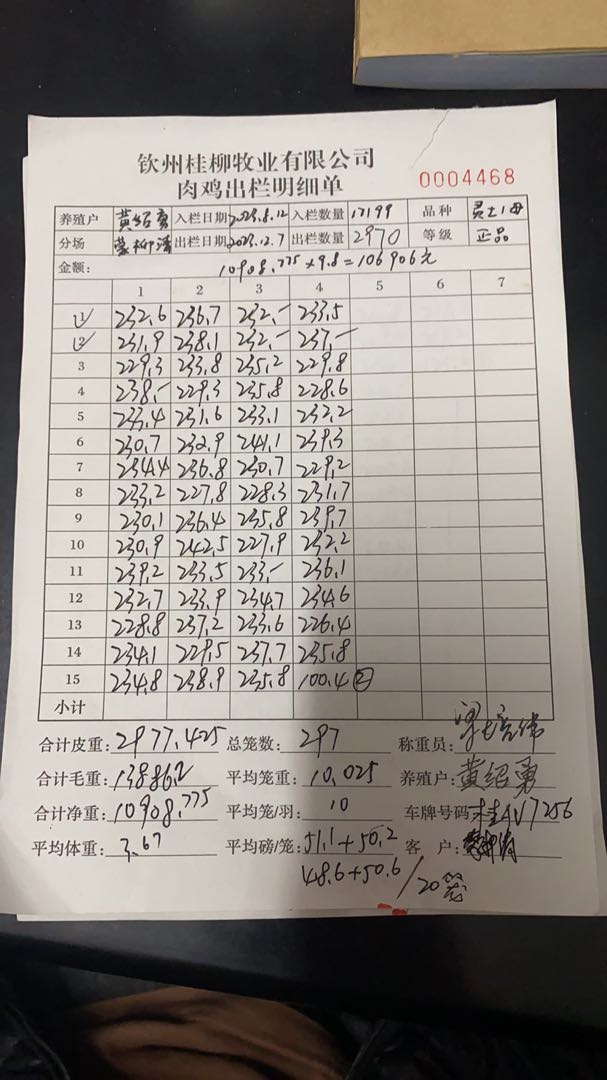 钦州桂柳牧业有限公司
肉鸡出栏明细单
0004468
养殖户 黄绍勇 入栏日期 2023.8.12 入栏数量 17199 品种 灵士1母
分场 出栏日期 2023.12.7 出栏数量 2970 等级 正品
金额: 10908.775×9.8=106906元
1 2 3 4 5 6 7
1 232.6 236.7 232.- 233.5
2 231.9 238.1 232.- 237.-
3 229.3 233.8 235.2 229.8
4 238.- 229.3 235.8 228.6
5 233.4 231.6 233.1 232.2
6 230.7 232.9 241.1 239.3
7 234.4 236.8 230.7 229.2
8 233.2 227.8 228.3 231.7
9 230.1 236.4 235.8 239.7
10 230.9 242.5 227.9 232.2
11 239.2 233.5 233.- 236.1
12 232.7 233.9 234.7 234.6
13 228.8 237.2 233.6 226.4
14 234.1 229.5 237.7 235.8
15 234.8 238.9 235.8 100.4 ②
小计
合计皮重: 2977.425 总笼数: 297 称重员:
合计毛重: 13886.2 平均笼重: 10.025 养殖户: 黄绍勇
合计净重: 10908.775 平均笼/羽: 10 车牌号码 桂AV7256
平均体重: 3.67 平均磅/笼: 51.1+50.2 客 户:
48.6+50.6/20笼